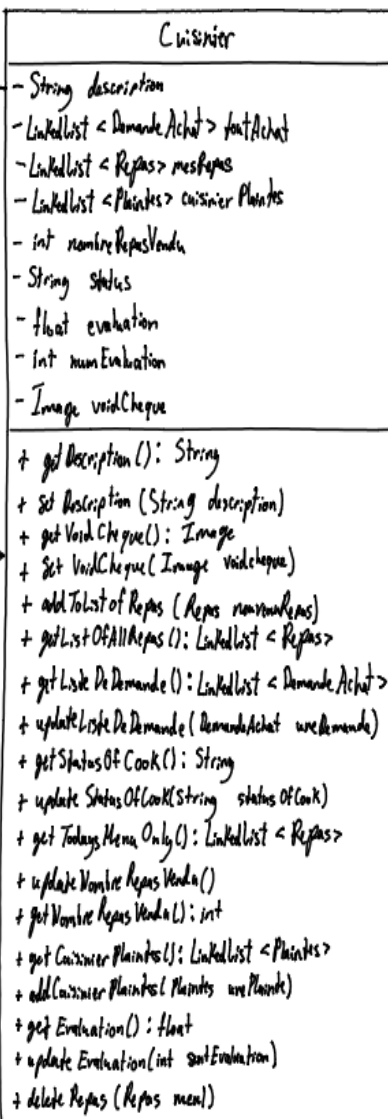 Cuisinier
- String description
- LinkedList < Demande Achat > toutAchat
- LinkedList < Repas > mesRepas
- LinkedList < Plaintes > cuisinier Plaintes
- int nombreRepasVendu
- String status
- float evaluation
- int numEvaluation
- Image voidCheque
+ get Description (): String
+ Set Description (String description)
+ get Void Cheque(): Image
+ Set VoidCheque( Image voidcheque)
+ addToList of Repas ( Repas nouveauRepas)
+ getListOfAllRepas (): LinkedList < Repas>
+ getListe De Demande (): LinkedList < Demande Achat>
+ updateListe De Demande ( DemandeAchat uneDemande)
+ getStatus Of Cook(): String
+ update Status OfCook(String status OfCook)
+ get Todays Menu Only(): LinkedList < Repas>
+ update Nombre Repas Vendu()
+ getNombre Repas Vendu(): int
+ get Cuisinier Plaintes(): LinkedList <Plaintes>
+ addCuisinier Plaintes( Plaintes unePlainte)
+ get Evaluation() : float
+ update Evaluation(int Evaluation)
+ delete Repas (Repas)